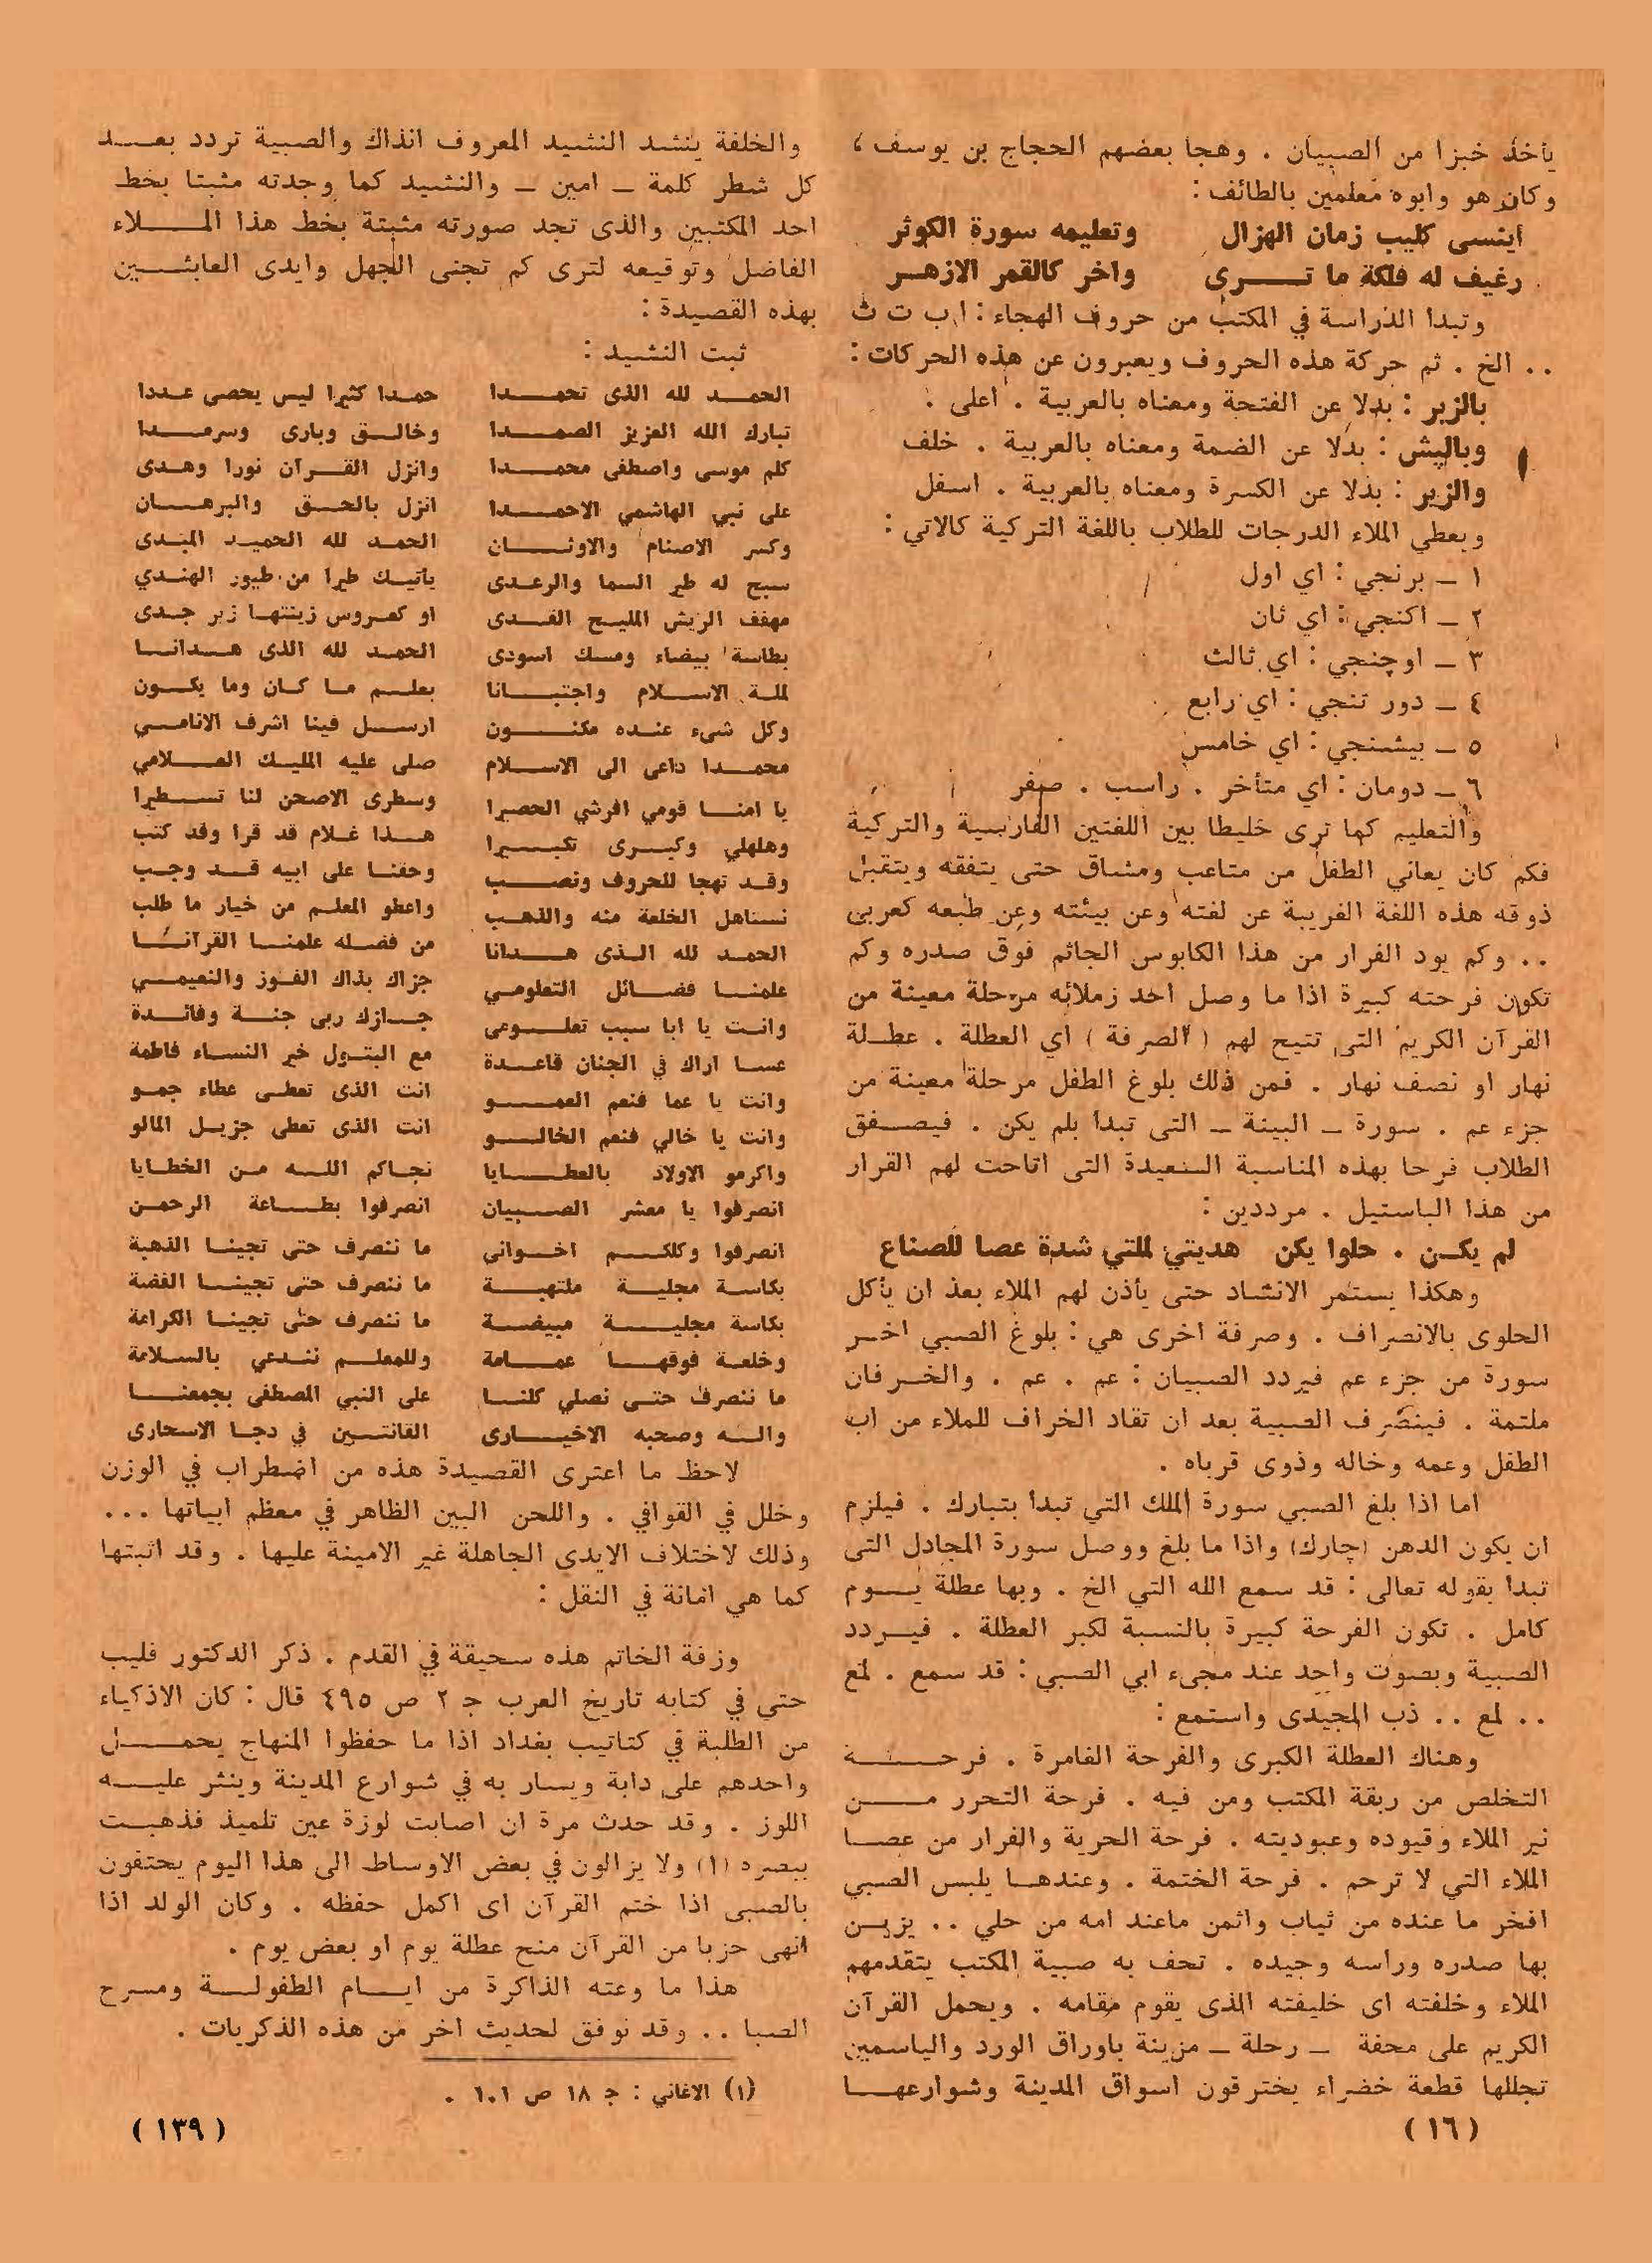 يأخذ خبزا من الصبيان . وهجا بعضهم الحجاج بن يوسف ،
وكان هو وابوه معلمين بالطائف :
أينسى كليب زمان الهزال وتعليمه سورة الكوثر
رغيف له فلكة ما تـــرى واخر كالقمر الازهـر
وتبدأ الدراسة في المكتب من حروف الهجاء : ا ب ت ث
. . الخ . ثم حركة هذه الحروف ويعبرون عن هذه الحركات :
بالزبر : بدلا عن الفتحة ومعناه بالعربية . أعلى .
وبالپش : بدلا عن الضمة ومعناه بالعربية . خلف
والزير : بدلا عن الكسرة ومعناه بالعربية . اسفل
ويعطي الملاء الدرجات للطلاب باللغة التركية كالاتي :
١ ـ برنجي : اي اول
٢ ـ اكنجي : اي ثان
٣ ـ اوچنجي : اي ثالث
٤ ـ دور تنجي : اي رابع
٥ ـ بيشنجي : اي خامس
٦ ـ دومان : اي متأخر . راسب . صفر
والتعليم كما ترى خليطا بين اللغتين الفارسية والتركية
فكم كان يعاني الطفل من متاعب ومشاق حتى يتفقه ويتقبل
ذوقه هذه اللغة الغريبة عن لغته وعن بيئته وعن طبعه كعربى
. . وكم يود الفرار من هذا الكابوس الجاثم فوق صدره وكم
تكون فرحته كبيرة اذا ما وصل احد زملائه مرحلة معينة من
القرآن الكريم التى تتيح لهم ( الصرفة ) اي العطلة . عطـلة
نهار او نصف نهار . فمن ذلك بلوغ الطفل مرحلة معينة من
جزء عم . سورة ـ البينة ـ التى تبدأ بلم يكن . فيصـفق
الطلاب فرحا بهذه المناسبة السعيدة التى اتاحت لهم القرار
من هذا الباستيل . مرددين :
لم يكـن . حلوا يكن هديتي للتي شدة عصا للصناع
وهكذا يستمر الانشاد حتى يأذن لهم الملاء بعد ان يأكل
الحلوى بالانصراف . وصرفة اخرى هي : بلوغ الصبي اخـر
سورة من جزء عم فيردد الصبيان : عم . عم . والخـرفان
ملتمة . فينصرف الصبية بعد ان تقاد الخراف للملاء من اب
الطفل وعمه وخاله وذوى قرباه .
اما اذا بلغ الصبي سورة الملك التي تبدأ بتبارك . فيلزم
ان يكون الدهن (چارك) واذا ما بلغ ووصل سورة المجادل التى
تبدا بقوله تعالى : قد سمع الله التي الخ . وبها عطلة يـوم
كامل . تكون الفرحة كبيرة بالنسبة لكبر العطلة . فيـردد
الصبية وبصوت واحد عند مجىء ابي الصبي : قد سمع . لمع
. . لمع . . ذب المجيدى واستمع :
وهناك العطلة الكبرى والفرحة الغامرة . فرحـــة
التخلص من ربقة المكتب ومن فيه . فرحة التحرر مـــن
نير الملاء وقيوده وعبوديته . فرحة الحرية والفرار من عصـا
الملاء التي لا ترحم . فرحة الختمة . وعندهـا يلبس الصبي
افخر ما عنده من ثياب واثمن ماعند امه من حلي . . يزيـن
بها صدره وراسه وجيده . تحف به صبية المكتب يتقدمهم
الملاء وخلفته اى خليفته الذى يقوم مقامه . ويحمل القرآن
الكريم على محفة ـ رحلة ـ مزينة باوراق الورد والياسمين
تجللها قطعة خضراء يخترقون اسواق المدينة وشوارعهـا
( ١٦ )
والخلفة ينشد النشيد المعروف انذاك والصبية تردد بعـــد
كل شطر كلمة ـ امين ـ والنشيد كما وجدته مثبتا بخط
احد المكتبين والذى تجد صورته مثبتة بخط هذا المـــلاء
الفاضل وتوقيعه لترى كم تجنى الجهل وايدى العابثـــين
بهذه القصيدة :
ثبت النشيد :
الحمــد لله الذى تحمــدا حمـدا كثيرا ليس يحصى عـددا
تبارك الله العزيز الصمــدا وخالــق وبارى وسرمــدا
كلم موسى واصطفى محمــدا وانزل القــرآن نورا وهـدى
على نبي الهاشمي الاحمــدا انزل بالحــق والبرهــان
وكسر الاصنام والاوثـــان الحمـد لله الحميـد المبـدى
سبح له طير السما والرعـدى يأتيـك طيرا من طيور الهنـدي
مهفف الريش المليـح الغـدى او كعـروس زينتهـا زبر جـدى
بطاسة بيضاء ومسك اسودى الحمـد لله الذى هـدانـا
لملة الاسـلام واجتبـانا بعلـم مـا كـان وما يكـون
وكل شىء عنـده مكنـــون ارسـل فينا اشرف الانامـي
محمـدا داعى الى الاسـلام صلى عليه المليـك العـلامي
يا امنـا قومي افرشي الحصيرا وسطرى الاصحن لنا تسـطيرا
وهلهلي وكبـرى تكبــيرا هـذا غـلام قد قرا وقد كتب
وقـد تهجا للحروف ونصـب وحقنـا على ابيه قـد وجـب
نستاهل الخلعة منه والذهـب واعطو المعلـم من خيار ما طلب
الحمـد لله الـذى هـدانا من فضـله علمنـا القرآنـا
علمنـا فضـائل التعلومـي جزاك بذاك الفـوز والنعيمـي
وانـت يا ابا سبب تعلـومى جـازك ربى جنـة وفائـدة
عسـا اراك في الجنان قاعـدة مع البتـول خير النساء فاطمة
وانت يا عما فنعم العمـــو انت الذى تعطـى عطاء جمـو
وانت يا خالي فنعم الخالـــو انت الذى تعطى جزيـل المالو
واكرمو الاولاد بالعطــايا نجـاكم اللــه مـن الخطـايا
انصرفوا يا معشر الصـبيان انصرفوا بطـاعة الرحمـن
انصرفوا وكلكـم اخـوانى ما ننصرف حتى تجينـا الذهبة
بكاسـة مجليـة ملتهبـة ما ننصرف حتى تجينـا الفضة
بكاسة مجليـة مبيضـة ما ننصرف حتى تجينـا الكرامة
وخلعـة فوقهـا عمـامة وللمعلـم نندعي بالسـلامة
ما ننصرف حتـى نصلي كلنـا على النبي المصطفى بجمعنـا
والـه وصحبه الاخيـارى القانتـين في دجـا الاسحارى
لاحظ ما اعترى القصيدة هذه من اضطراب في الوزن
وخلل في القوافي . واللحن البين الظاهر في معظم ابياتها . . .
وذلك لاختلاف الايدى الجاهلة غير الامينة عليها . وقد اثبتها
كما هي امانة في النقل :
وزفة الخاتم هذه سحيقة في القدم . ذكر الدكتور فليب
حتي في كتابه تاريخ العرب جـ ٢ ص ٤٩٥ قال : كان الاذكياء
من الطلبة في كتاتيب بغداد اذا ما حفظوا المنهاج يحمــل
واحدهم على دابة ويسار به في شوارع المدينة وينثر عليــه
اللوز . وقد حدث مرة ان اصابت لوزة عين تلميذ فذهبـت
ببصره (١) ولا يزالون في بعض الاوساط الى هذا اليوم يحتفون
بالصبى اذا ختم القرآن اى اكمل حفظه . وكان الولد اذا
انهى حزبا من القرآن منح عطلة يوم او بعض يوم .
هذا ما وعته الذاكرة من ايـام الطفولـة ومسرح
الصبا . . وقد نوفق لحديث اخر من هذه الذكريات .
(١) الاغاني : جـ ١٨ ص ١٠١ .
( ١٣٩ )